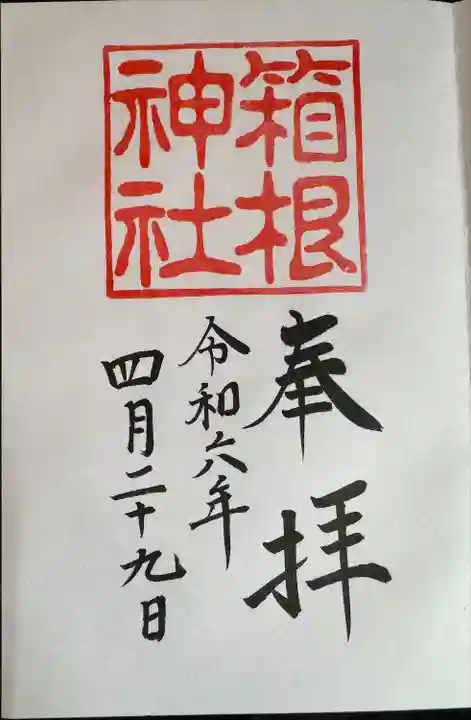 箱根
神社
奉拝
令和六年
四月二十九日